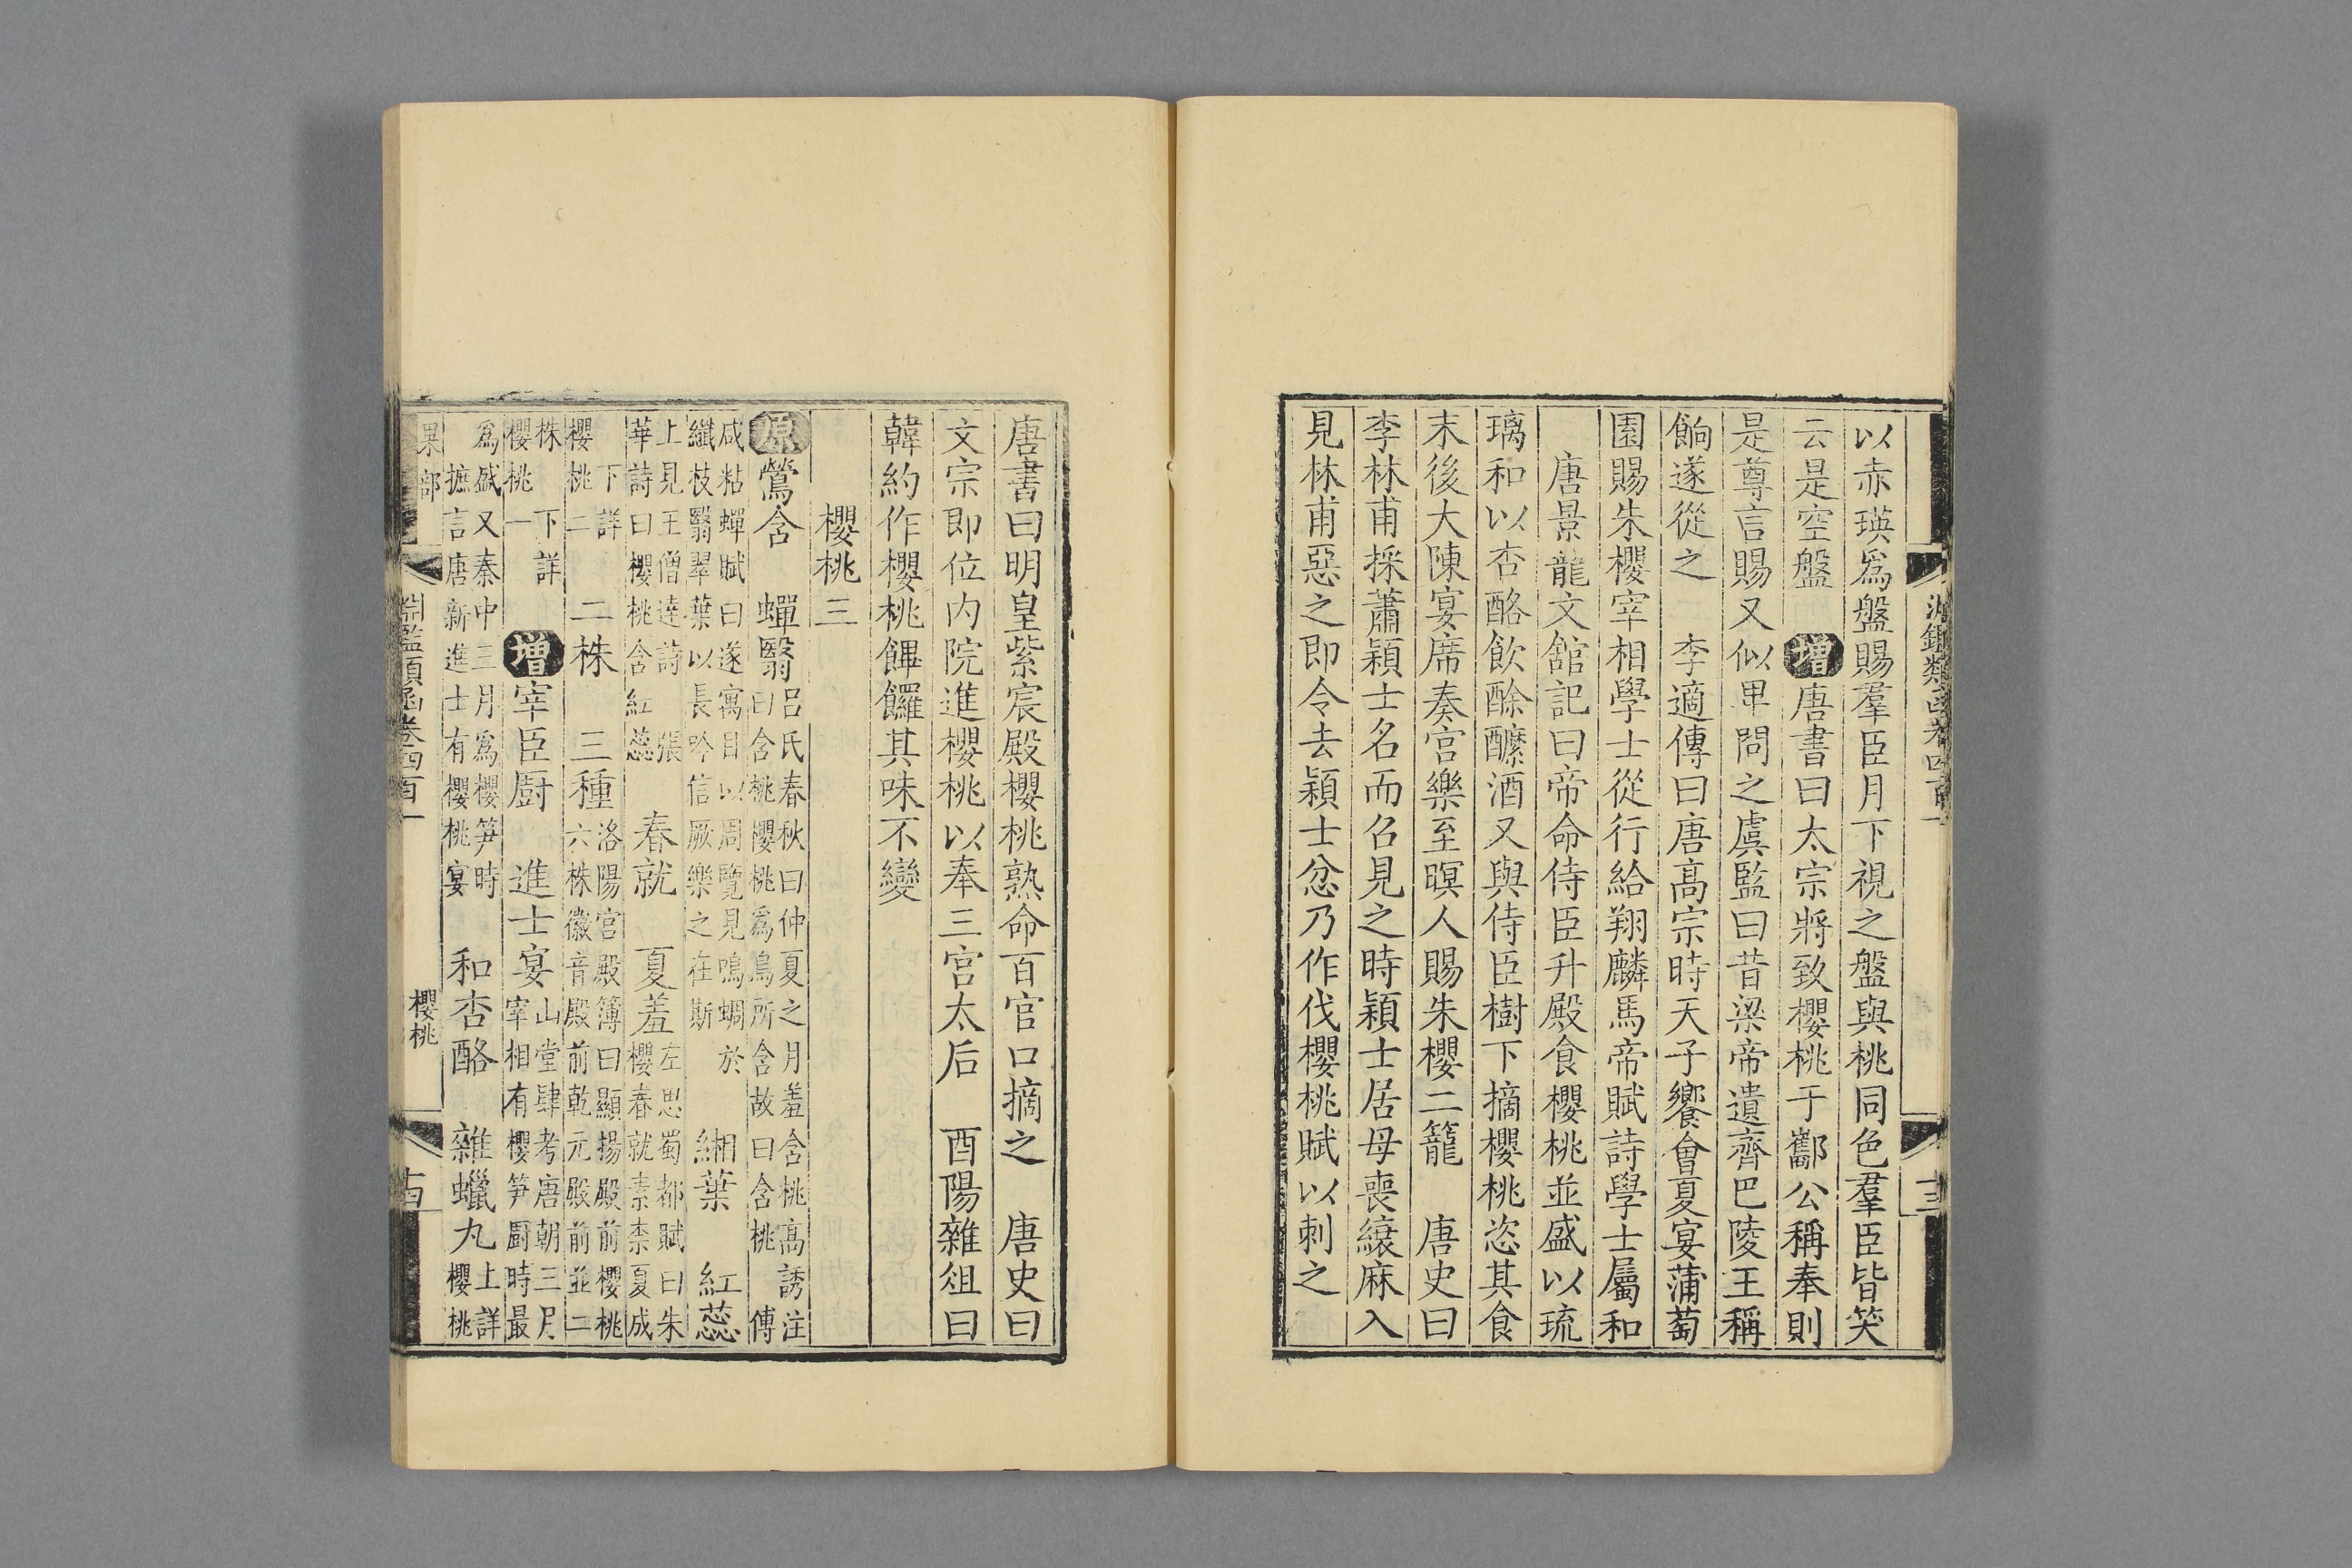 淵鑑類函卷四百一
十三
以赤瑛爲盤賜羣臣月下視之盤與桃同色羣臣皆笑
云是空盤 增唐書曰太宗將致櫻桃于酅公稱奉則
是尊言賜又似卑問之虞監曰昔梁帝遺齊巴陵王稱
餉遂從之 李適傳曰唐高宗時天子饗會夏宴蒲萄
園賜朱櫻宰相學士從行給翔麟馬帝賦詩學士屬和
唐景龍文館記曰帝命侍臣升殿食櫻桃並盛以琉
璃和以杏酪飲酴醾酒又與侍臣樹下摘櫻桃恣其食
末後大陳宴席奏宮樂至暝人賜朱櫻二籠 唐史曰
李林甫採蕭穎士名而召見之時穎士居母喪縗麻入
見林甫惡之即令去穎士忿乃作伐櫻桃賦以刺之
唐書曰明皇紫宸殿櫻桃熟命百官口摘之 唐史曰
文宗即位內院進櫻桃以奉三宮太后 酉陽雜俎曰
韓約作櫻桃饆饠其味不變
櫻桃三
原鶯含 蟬翳呂氏春秋曰仲夏之月羞含桃高誘注
曰含桃櫻桃爲鳥所含故曰含桃 傅
咸粘蟬賦曰遂寓目以周覽見鳴蜩於
纖枝翳翠葉以長吟信厥樂之在斯 緗葉 紅蕊
上見王僧達詩 張
華詩曰櫻桃含紅蕊 春就 夏羞左思蜀都賦曰朱
櫻春就素柰夏成
下詳
櫻桃二 二株 三種洛陽宮殿簿曰顯揚殿前櫻桃
六株徽音殿前乾元殿前並二
株 下詳
櫻桃一 增宰臣廚 進士宴山堂肆考唐朝三月
宰相有櫻筍廚時最
爲盛又秦中三月爲櫻笋時
摭言唐新進士有櫻桃宴 和杏酪 雜蠟丸上詳
櫻桃
果部
淵鑑類函卷四百一
櫻桃
十四